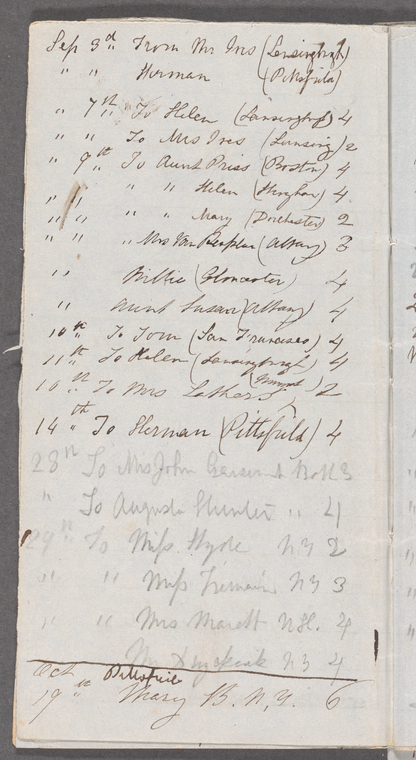 Sep 3d " From Mr Ives (Lansingburgh)
" " Herman (Pittsfield)
" 7th " To Helen (Lansingbgh) 4
" " To Mrs Ives (Lansing) 2
" 9th " To Aunt Priss (Boston) 4
" " " " Helen (Hingham) 4
" " " " Mary (Dorchester) 2
" " " Mrs Van (Albany) 3
" " Willie (Gloucester) 4
" Aunt Susan (Albany) 4
10th To Tom (San Francisco) 4
11th To Helen (Lansingburgh) 4
10th " To Mrs Lathers 2
14th " To Herman (Pittsfield) 4
28th To Mrs John 3
" To Augusta Hunter " 4
29th To Miss Hyde NY 2
" " Miss NY 3
" " Mrs Marett 4
NY 4
Oct Pittsfield
19th " Mary B. N.Y. 6